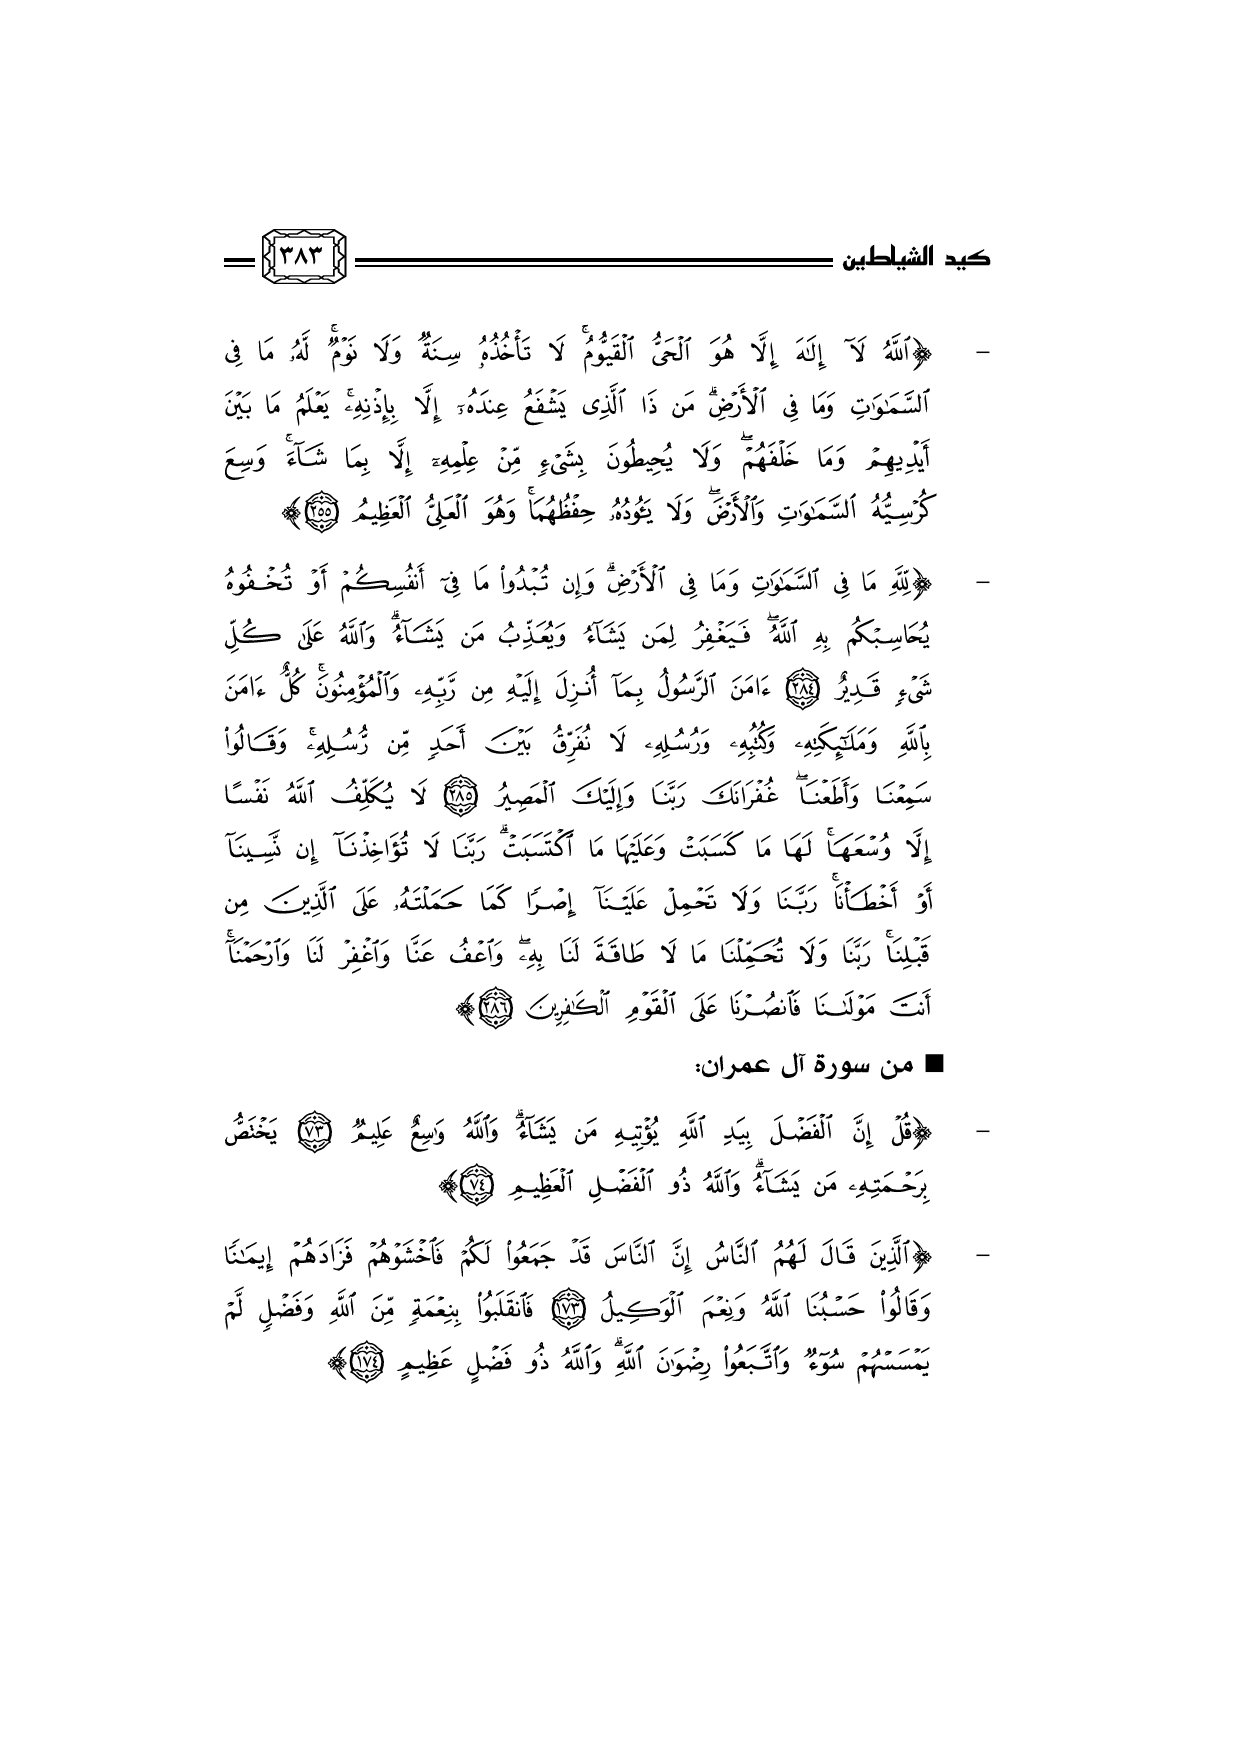 كيد الشياطين ٣٨٣
– ﴿ٱللَّهُ لَآ إِلَٰهَ إِلَّا هُوَ ٱلْحَىُّ ٱلْقَيُّومُ ۚ لَا تَأْخُذُهُۥ سِنَةٌ وَلَا نَوْمٌ ۚ لَّهُۥ مَا فِى
ٱلسَّمَٰوَٰتِ وَمَا فِى ٱلْأَرْضِ ۗ مَن ذَا ٱلَّذِى يَشْفَعُ عِندَهُۥٓ إِلَّا بِإِذْنِهِۦ ۚ يَعْلَمُ مَا بَيْنَ
أَيْدِيهِمْ وَمَا خَلْفَهُمْ ۖ وَلَا يُحِيطُونَ بِشَىْءٍ مِّنْ عِلْمِهِۦٓ إِلَّا بِمَا شَآءَ ۚ وَسِعَ
كُرْسِيُّهُ ٱلسَّمَٰوَٰتِ وَٱلْأَرْضَ ۖ وَلَا يَـُٔودُهُۥ حِفْظُهُمَا ۚ وَهُوَ ٱلْعَلِىُّ ٱلْعَظِيمُ ٢٥٥﴾
– ﴿لِّلَّهِ مَا فِى ٱلسَّمَٰوَٰتِ وَمَا فِى ٱلْأَرْضِ ۗ وَإِن تُبْدُوا۟ مَا فِىٓ أَنفُسِكُمْ أَوْ تُخْفُوهُ
يُحَاسِبْكُم بِهِ ٱللَّهُ ۖ فَيَغْفِرُ لِمَن يَشَآءُ وَيُعَذِّبُ مَن يَشَآءُ ۗ وَٱللَّهُ عَلَىٰ كُلِّ
شَىْءٍ قَدِيرٌ ٢٨٤ ءَامَنَ ٱلرَّسُولُ بِمَآ أُنزِلَ إِلَيْهِ مِن رَّبِّهِۦ وَٱلْمُؤْمِنُونَ ۚ كُلٌّ ءَامَنَ
بِٱللَّهِ وَمَلَٰٓئِكَتِهِۦ وَكُتُبِهِۦ وَرُسُلِهِۦ لَا نُفَرِّقُ بَيْنَ أَحَدٍ مِّن رُّسُلِهِۦ ۚ وَقَالُوا۟
سَمِعْنَا وَأَطَعْنَا ۖ غُفْرَانَكَ رَبَّنَا وَإِلَيْكَ ٱلْمَصِيرُ ٢٨٥ لَا يُكَلِّفُ ٱللَّهُ نَفْسًا
إِلَّا وُسْعَهَا ۚ لَهَا مَا كَسَبَتْ وَعَلَيْهَا مَا ٱكْتَسَبَتْ ۗ رَبَّنَا لَا تُؤَاخِذْنَآ إِن نَّسِينَآ
أَوْ أَخْطَأْنَا ۚ رَبَّنَا وَلَا تَحْمِلْ عَلَيْنَآ إِصْرًا كَمَا حَمَلْتَهُۥ عَلَى ٱلَّذِينَ مِن
قَبْلِنَا ۚ رَبَّنَا وَلَا تُحَمِّلْنَا مَا لَا طَاقَةَ لَنَا بِهِۦ ۖ وَٱعْفُ عَنَّا وَٱغْفِرْ لَنَا وَٱرْحَمْنَآ ۚ
أَنتَ مَوْلَىٰنَا فَٱنصُرْنَا عَلَى ٱلْقَوْمِ ٱلْكَٰفِرِينَ ٢٨٦﴾
■ من سورة آل عمران:
– ﴿قُلْ إِنَّ ٱلْفَضْلَ بِيَدِ ٱللَّهِ يُؤْتِيهِ مَن يَشَآءُ ۗ وَٱللَّهُ وَٰسِعٌ عَلِيمٌ ٧٣ يَخْتَصُّ
بِرَحْمَتِهِۦ مَن يَشَآءُ ۗ وَٱللَّهُ ذُو ٱلْفَضْلِ ٱلْعَظِيمِ ٧٤﴾
– ﴿ٱلَّذِينَ قَالَ لَهُمُ ٱلنَّاسُ إِنَّ ٱلنَّاسَ قَدْ جَمَعُوا۟ لَكُمْ فَٱخْشَوْهُمْ فَزَادَهُمْ إِيمَٰنًا
وَقَالُوا۟ حَسْبُنَا ٱللَّهُ وَنِعْمَ ٱلْوَكِيلُ ١٧٣ فَٱنقَلَبُوا۟ بِنِعْمَةٍ مِّنَ ٱللَّهِ وَفَضْلٍ لَّمْ
يَمْسَسْهُمْ سُوٓءٌ وَٱتَّبَعُوا۟ رِضْوَٰنَ ٱللَّهِ ۗ وَٱللَّهُ ذُو فَضْلٍ عَظِيمٍ ١٧٤﴾